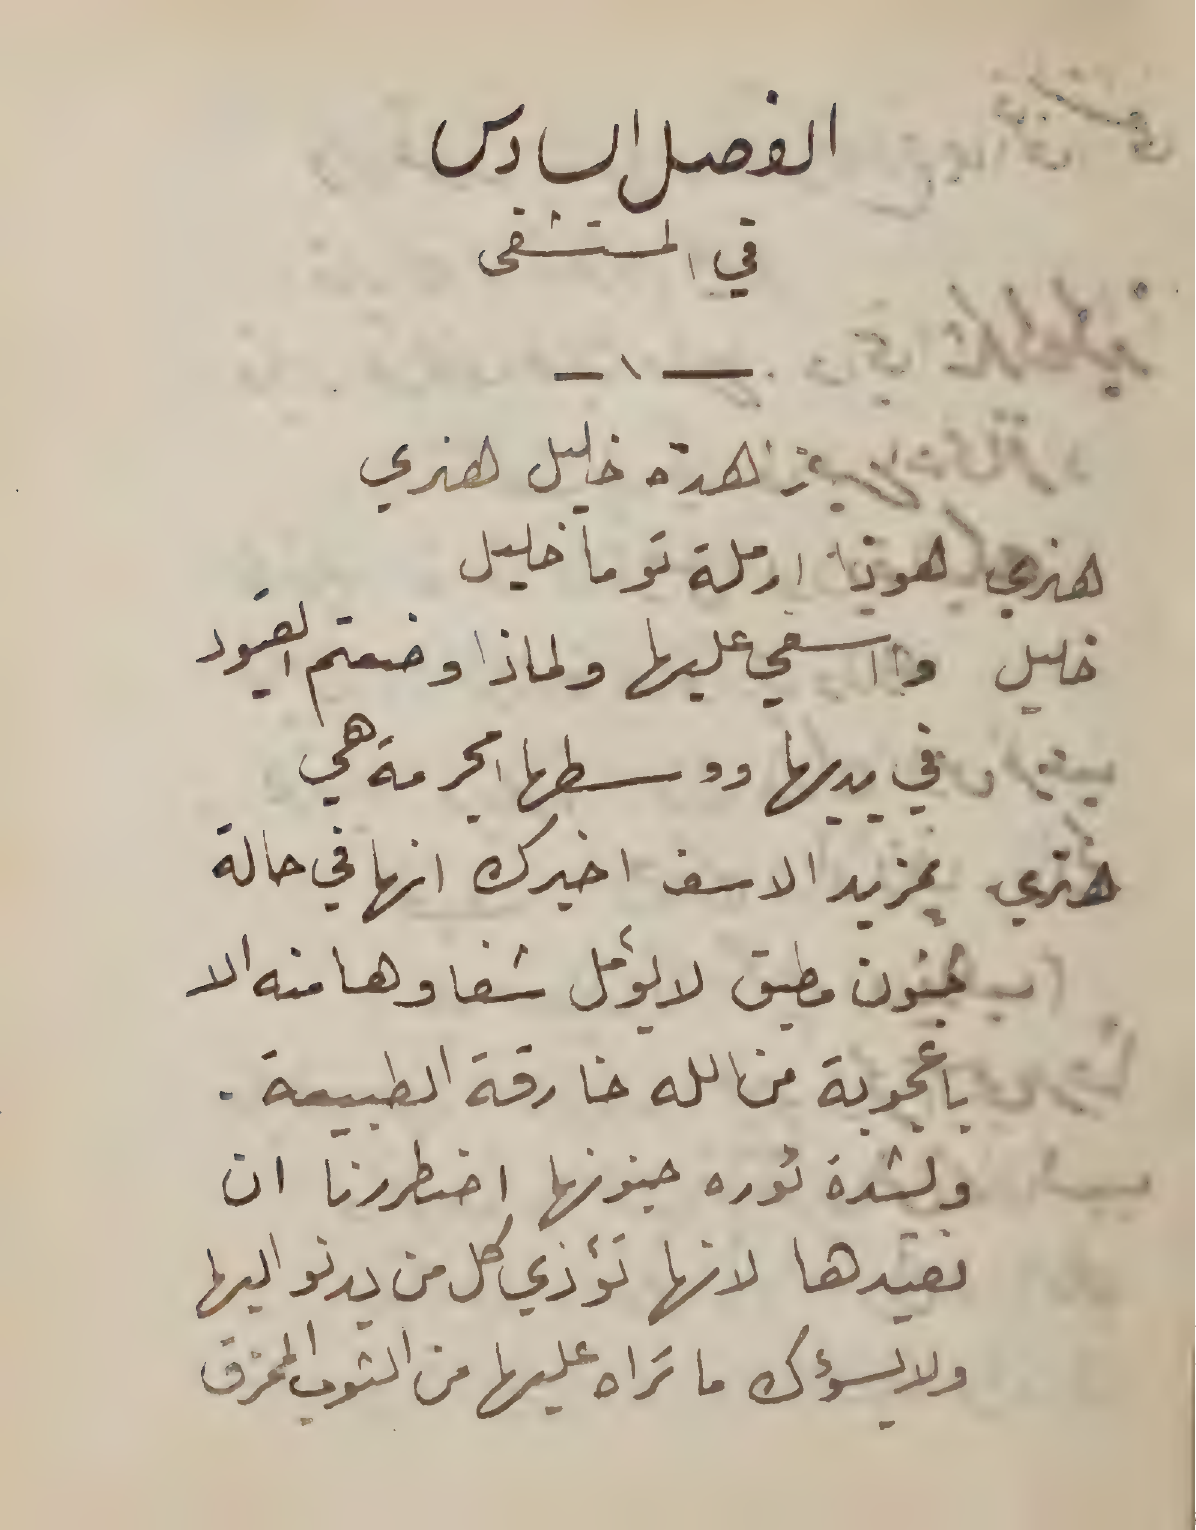 الفصل السادس
في المستشفى
— ١ —
هذه خليل هنري
هنري هوذا ارملة توما خليل
خليل وااسفي عليها ولماذا وضعتم القيود
في يديها ووسطها امجرمة هي
هنري بمزيد الاسف اخبرك انها في حالة
جنون مطبق لا يؤمل شفاوها منه الا
باعجوبة من الله خارقة الطبيعة .
ولشدة ثوره جنونها اضطررنا ان
نقيدها لانها تؤذي كل من يدنو اليها
ولا يسوءك ما تراه عليها من الثوب الممزق